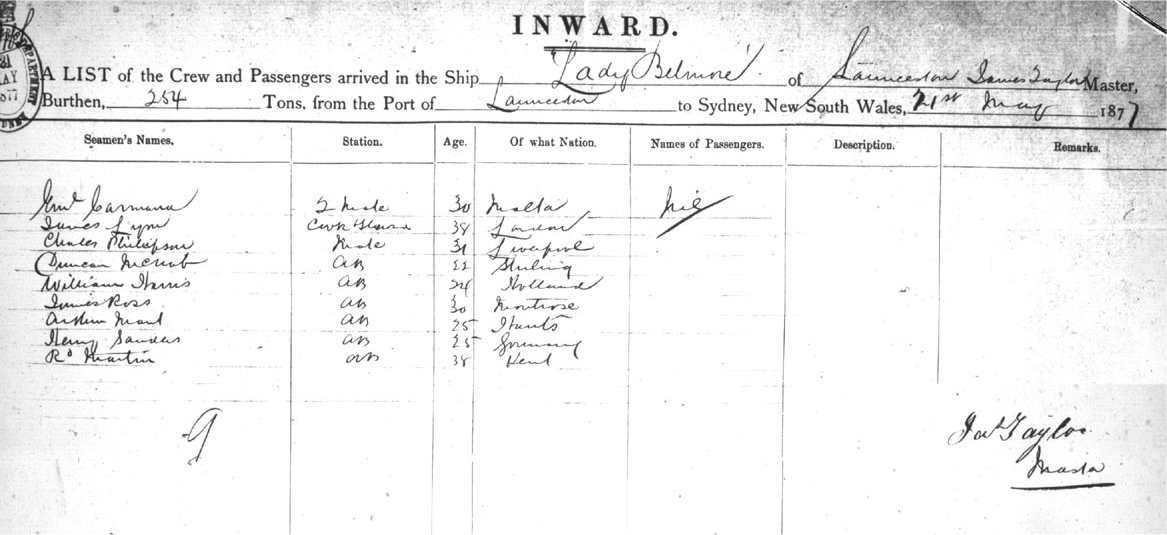 INWARD.
A LIST of the Crew and Passengers arrived in the Ship "Lady Belmore" of Launceston James Taylor Master,
Burthen, 254 Tons, from the Port of Launceston to Sydney, New South Wales, 21st May 1877
Seamen's Names. Station. Age. Of what Nation. Names of Passengers. Description. Remarks.
Carmana 2 Mate 30 Malta Nil
James Lyon 38 London
Charles Philipson Mate 31 Liverpool
Duncan McNab AB 22 Stirling
William Harris AB 24 Holland
James Ross AB 30 Montrose
Arthur AB 25 Hants
Henry Sanders AB 25 Germany
Rd Martin AB 38 Kent
9
Jas Taylor
Master